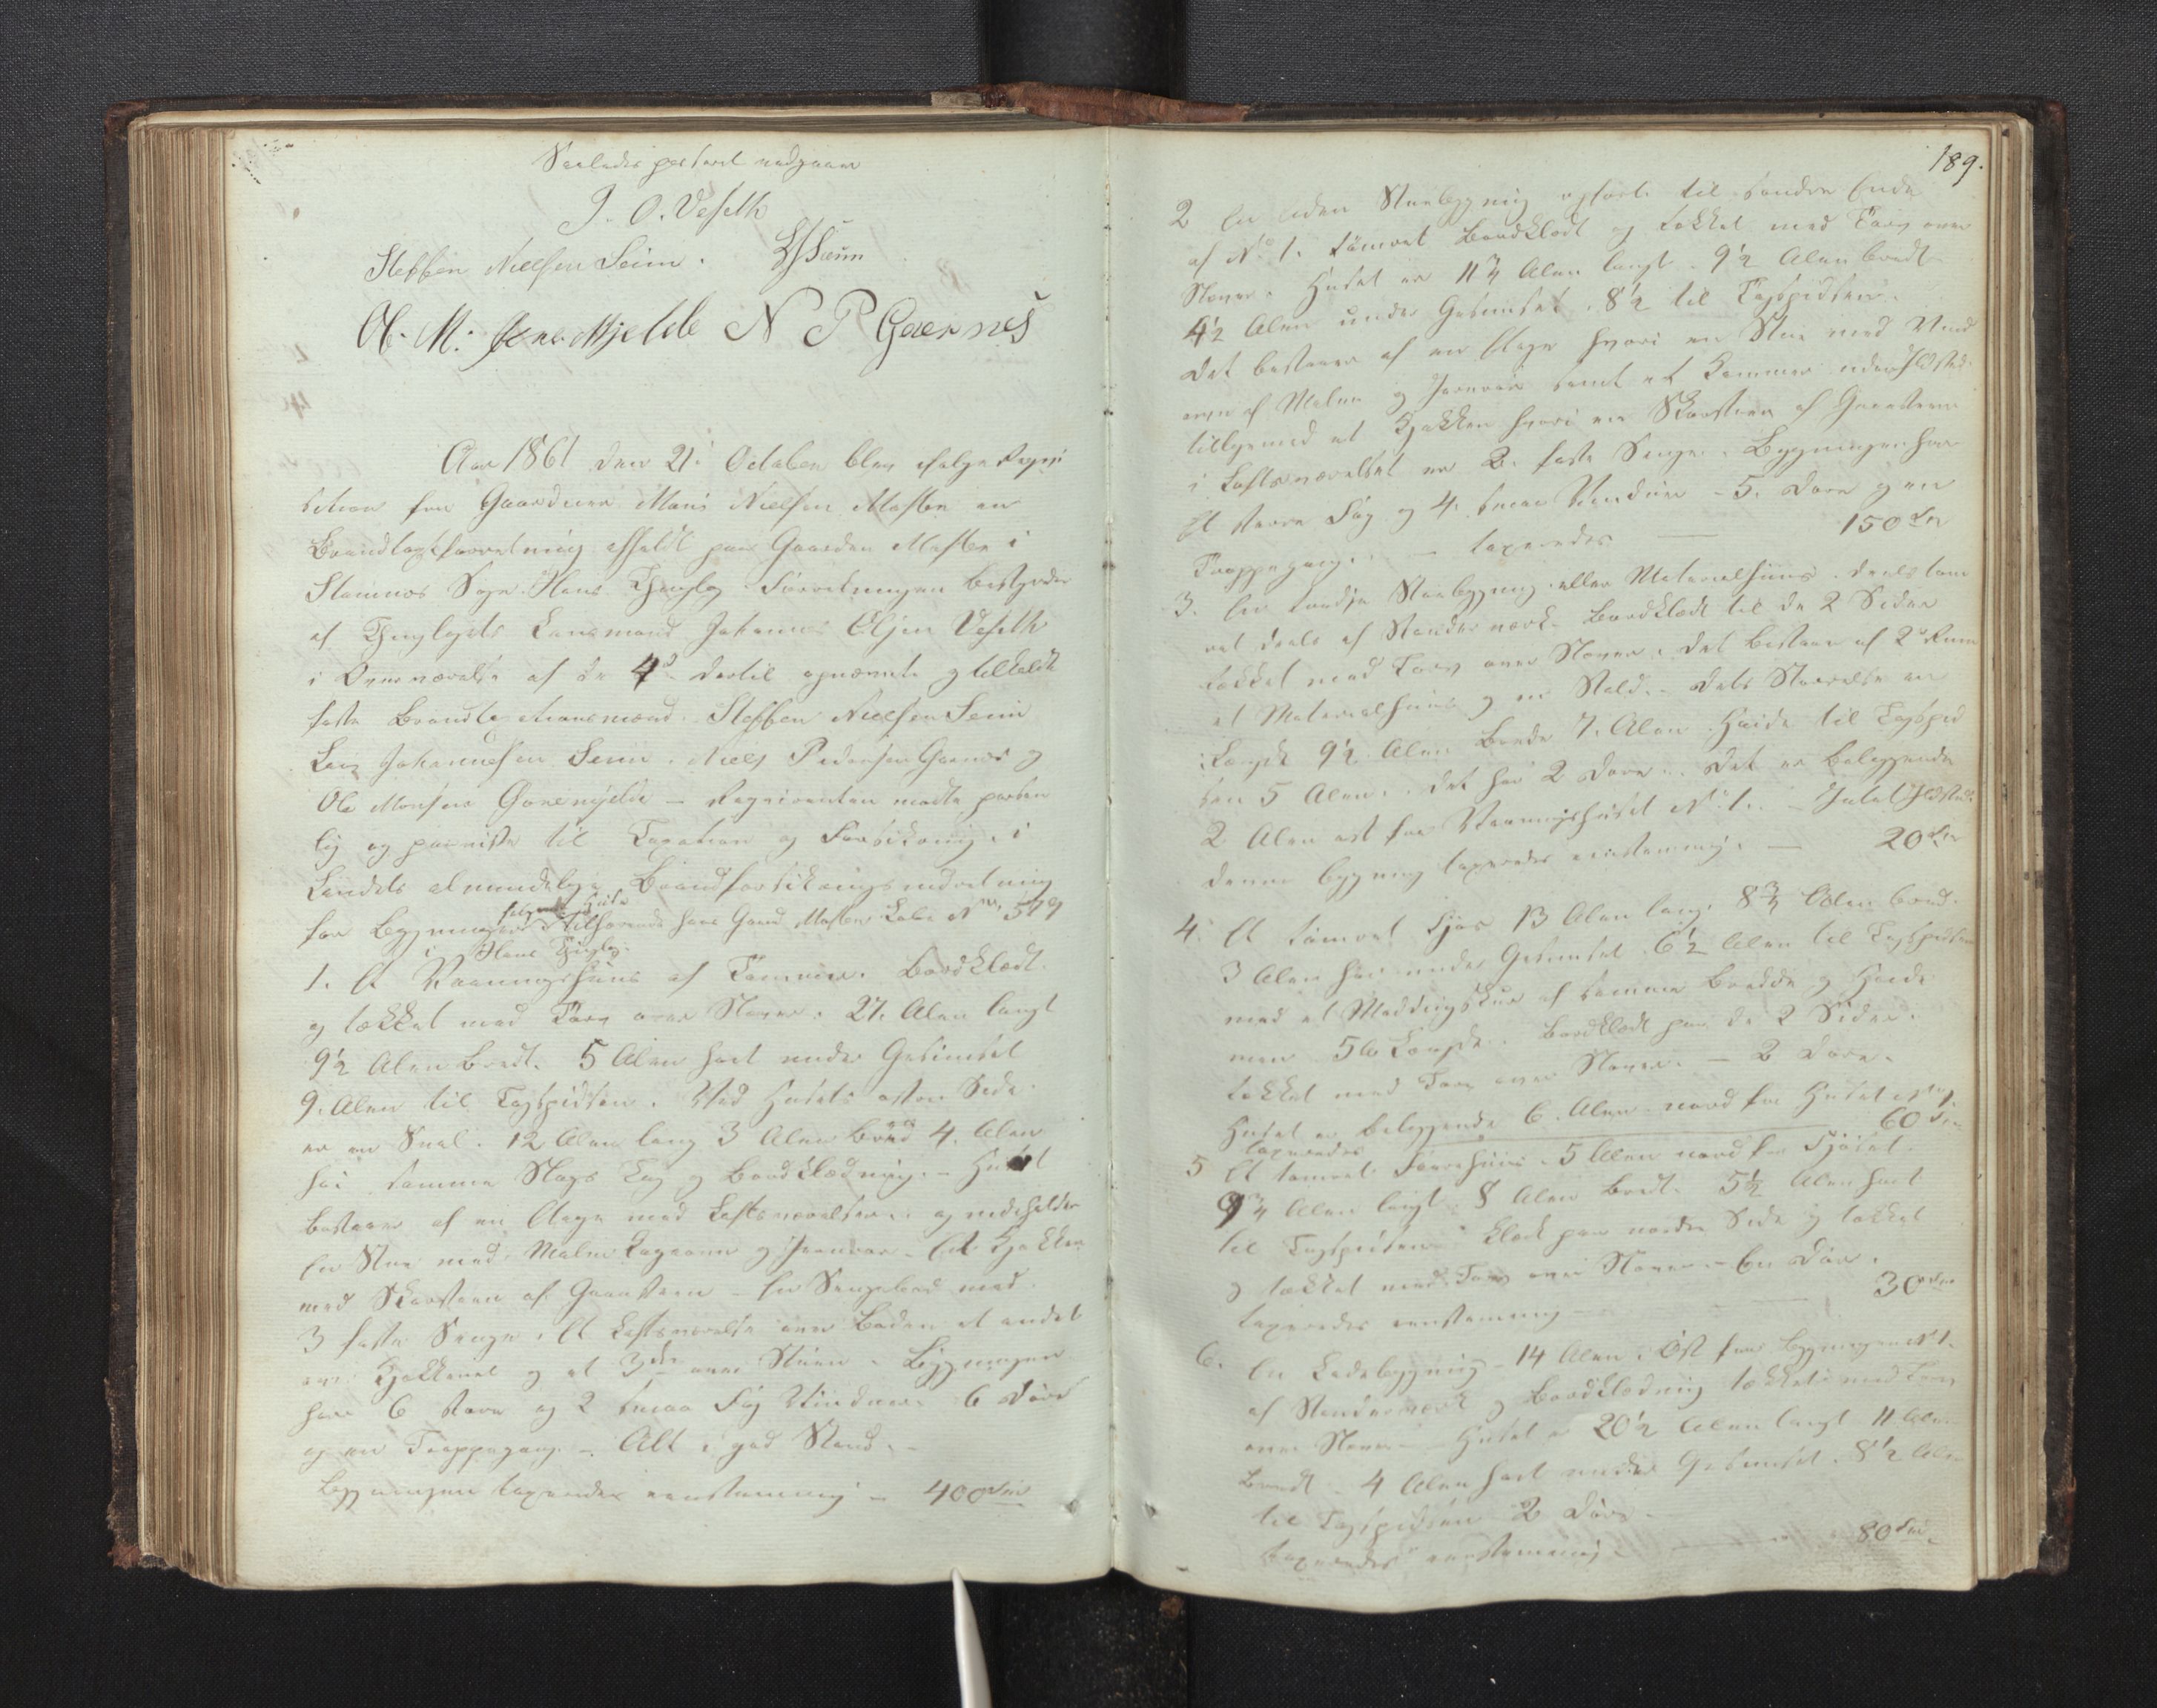 Saaledes passeret vedgaaer
J. O. Veseth
Steffen Nielsen Seim. L J Seim
Ol. M. Gjeremjelde N P Gaernes
Aar 1861 den 21. October blev ifølge Reqvi
sition fra Gaardeier Mons Nielsen Mostøen en
Brandtaxtforretning afholdt paa Gaarden Mostøen i
Stamnes Sogn Hans Thinglag. Forretningen bestyredes
af Thinglagets Lensmand Johannes Olsen Veseth
i Overværelse af de 4de dertil opnævnte og tilkaldte
faste Brandtaxtionsmænd. Steffen Nielsen Seim
Lars Johannesen Seim. Niels Pedersen Gaernes og
Ole Monsen Gjeremjelde – Reqvirenten mødte person
lig og paaviste til Taxation og Forsikring i
Landets almindelige Brandforsikringsindretning
følgende Huse
for Bygninger tilhørende hans Gaard Mostøen Løbe No
i Hans Thinglag.
1. Et Vaaningshuus af Tømmer. Bordklædt.
og tækket med Tørv over Næver. 27. Alen langt
9½ Alen Bredt. 5 Alen høit under Gesimset
9. Alen til Tagspidsen. Ved Husets østre Side
er en Sval. 12 Alen lang 3 Alen bred 4. Alen
høi samme Slags Tag og Bordklædning. – Huset
bestaaer af en Etage med Loftsværelser og indeholder
En Stue med Malm Kagovn og Jernrør – Et Kjøkken
med Skorsteen af Graasteen – En Sengebod med
3 faste Senge. Et Loftsværelse over Boden et andet
over Kjøkkenet og et 3die over Stuen. Bygningen
har 6 større og 2 smaa Fag Vinduer 6 Døre
og en Trappegang. – Alt i god Stand. –
Bygningen taxeredes eenstemmig – 400 Spd
189.
2 En liden Stuebygning opført til søndre Ende
af No 1. tømret Bordklædt og tækket med Tørv over
Næver. Huset er 11¾ Alen langt – 9½ Alen bredt
4½ Alen under Gesimset. 8½ til Tagspidsen.
Det bestaaer af en Etage hvori en Stue med Vind
ovn af Malm og Jernrør samt et Kammer uden Ildsted
tilligemed et Kjøkken hvori en Skorsteen af Graasteen
i Loftsværelset er 2. faste Senge. Bygningen har
Et større Fag og 4. smaae Vinduer – 5. Døre og en
Trappegang. – taxeredes – 150 Spd
3. En Stuebygning eller Materialhuus. deels tøm
ret deels af Stenderværk. Bordklædt til de 2 Sider
tækket med Tørv over Næver. Det bestaaer af 2de Rum
et Materialhuus og en Stald. – Dets Størrelse er
i Længde 9½ Alen Brede 7. Alen Høide til Tagspid
sen 5 Alen. Det har 2 Døre. Det er beliggende
2 Alen øst for Vaaningshuset No 1. – Intet Ildsted
denne bygning taxeredes eenstemmig. – 20 Spd
4. Et tømret Fjøs 13 Alen lang. 8¾ Alen bred.
3 Alen høi under Gesimset. 6½ Alen til Tagspidsen
med et Møddingskur af samme Bredde og Høide
men 5 Al Længde. Bordklædt paa de 2 Sider.
tækket med Tørv over Næver. – 2 Døre.
Huset er beliggende 6. Alen nord for Huset No 1.
taxeredes 60 Spd
5 Et tømret Tørrehuus. 5 Alen nord for Fjøset.
9¾ Alen langt. 8 Alen bredt. 5½ Alen høit
til Tagspidsen klædt paa nordre Side og tækket
og tækket med Tørv over Næver – En Dør.
taxeredes eenstemmig – 30 Spd
6. En Ladebygning – 14 Alen. Øst for Bygningen No 1.
af Stenderværk og Bordklædning tækket med Tørv
over Næver – Huset er 20½ Alen langt 11 Alen
bredt – 4 Alen høit under Gesimset. 8½ Alen
til Tagspidsen 2 Døre. –
taxeredes eenstemmig. – 80 Spd.